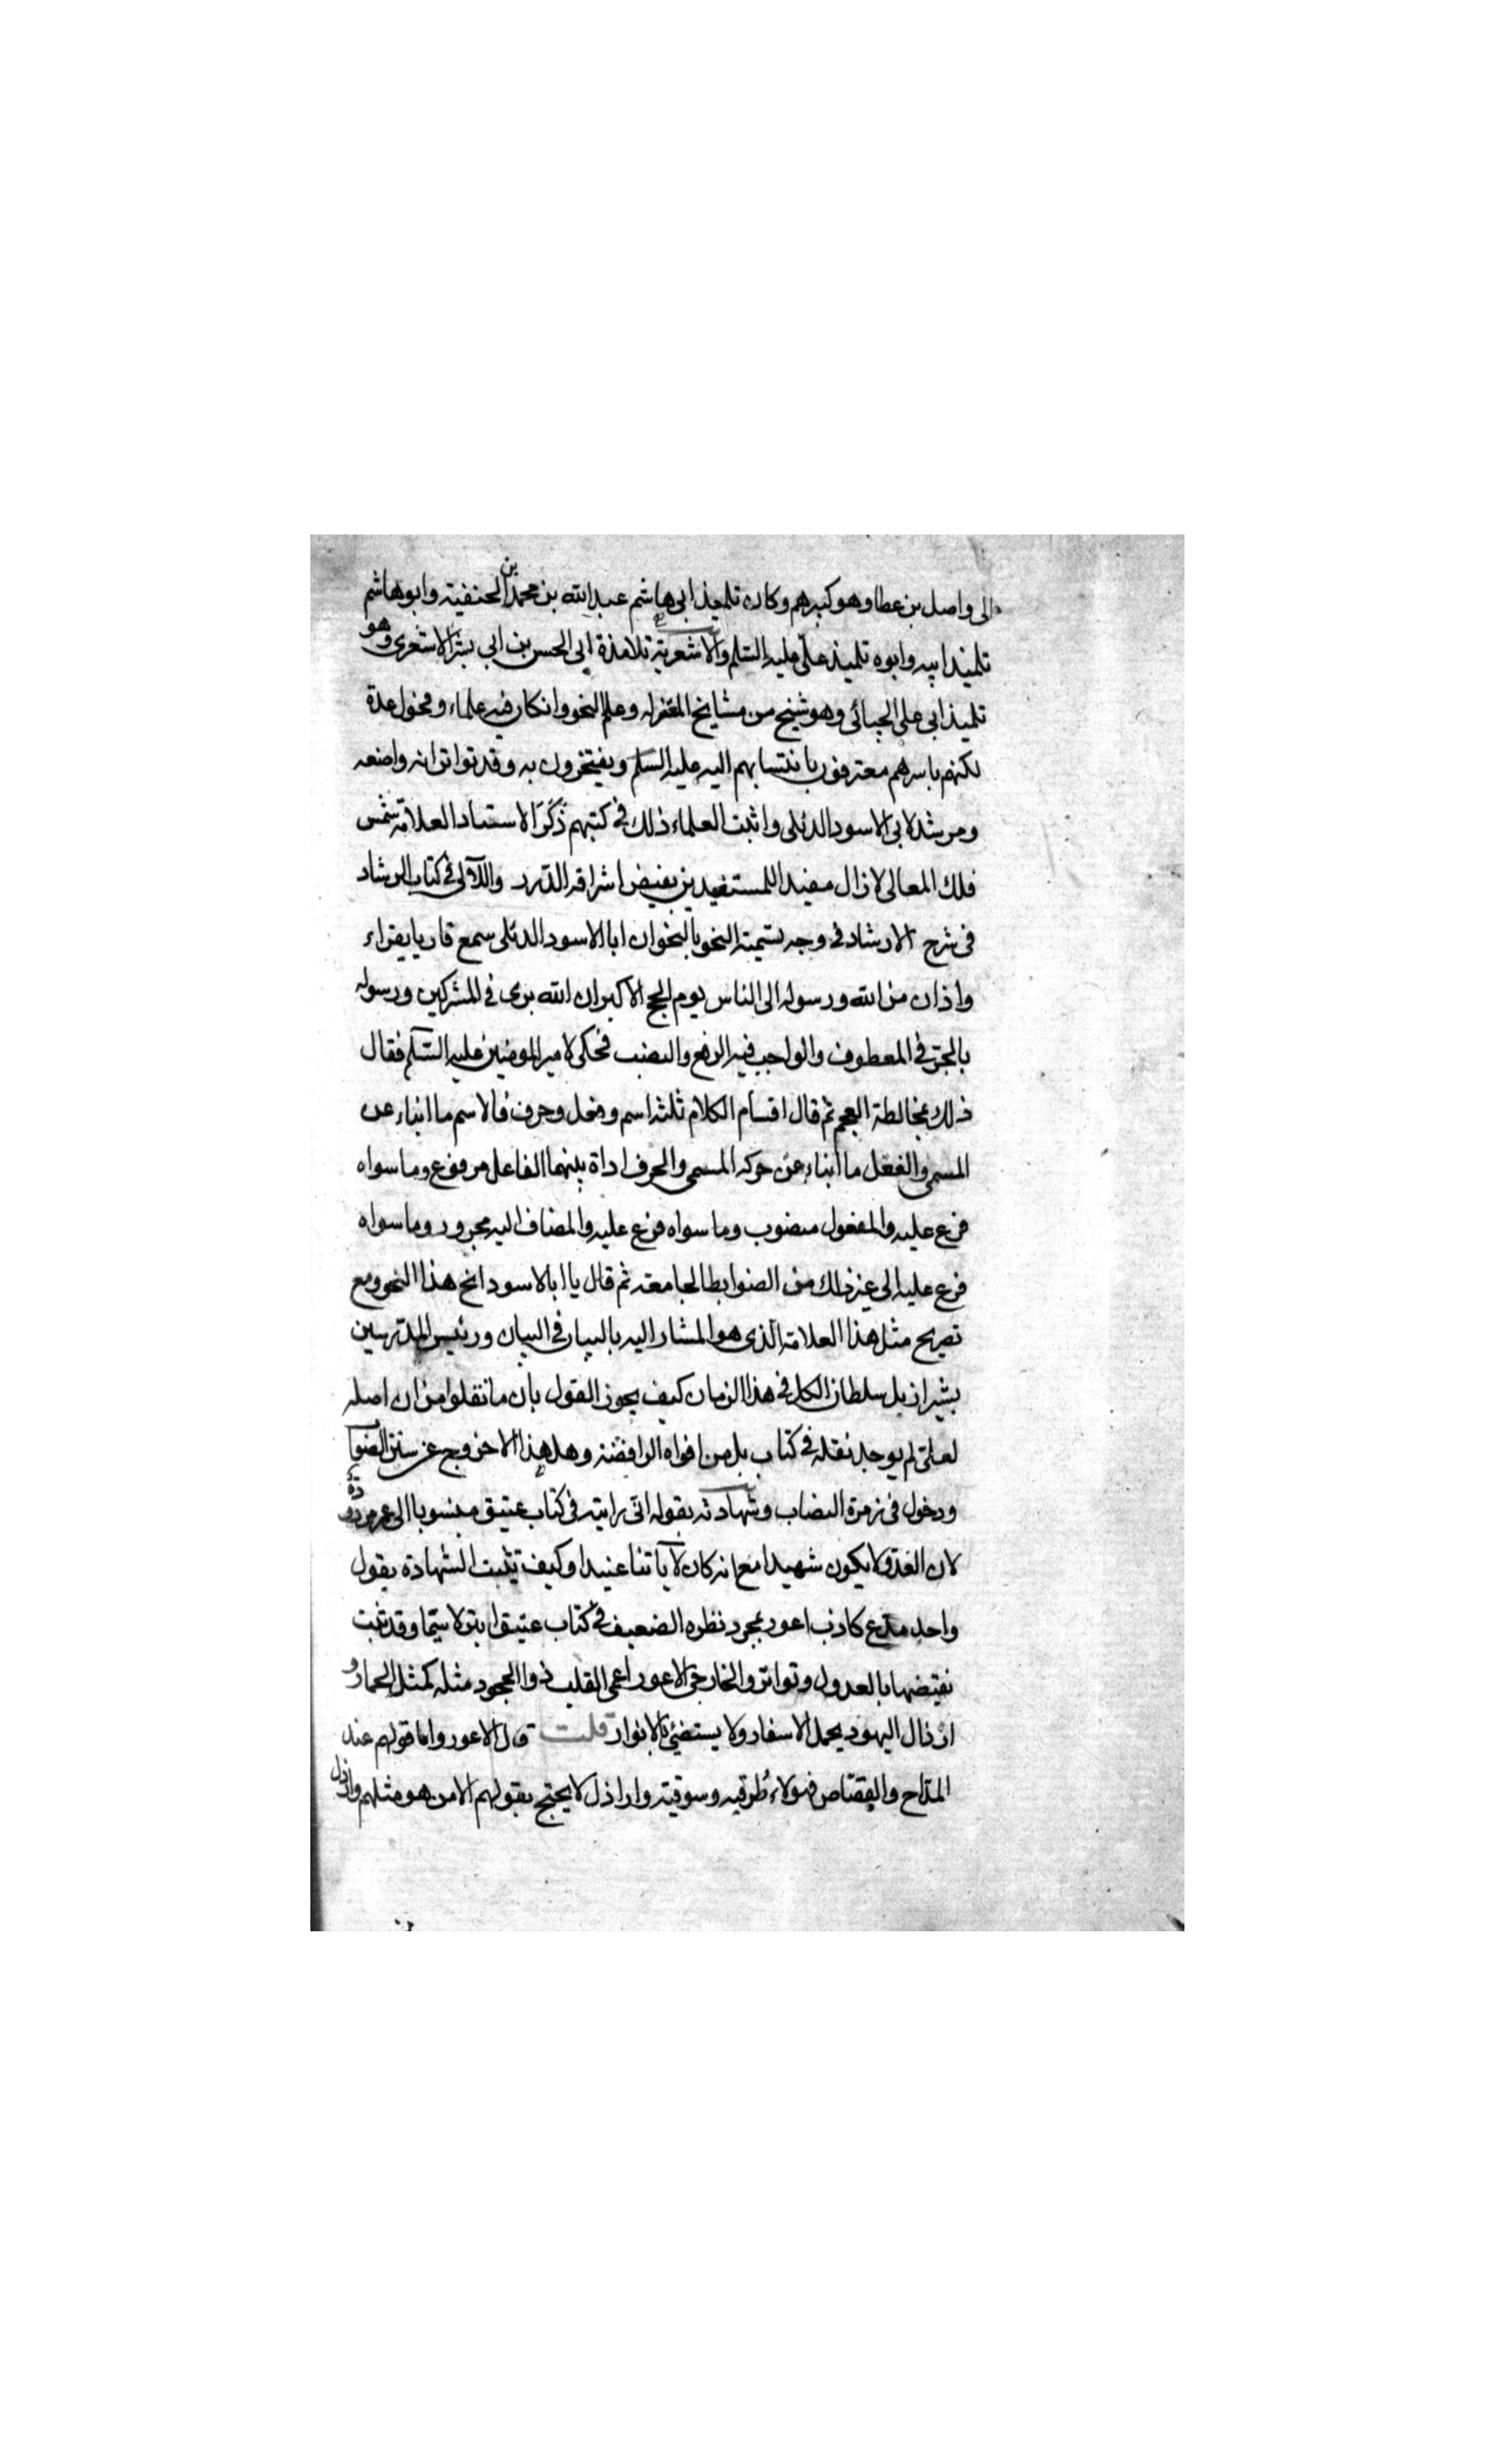 الى واصل بن عطا وهو كبيرهم وكان تلميذ ابى هاشم عبد الله بن محمد بن الحنفية وابو هاشم
تلميذ ابيه وابوه تلميذ على عليه السلم والاشعرية تلامذة ابى الحسن بن ابي بشر الاشعرى وهو
تلميذ ابى على الجبائى وهو شيخ من مشايخ المعتزله وعلم النحو وان كان فيه علماء وفحول عدة
لكنهم باسرهم معترفون بانتسابهم اليه عليه السلم ويفتخرون به وقد تواتر انه واضعه
ومرشد لابى الاسود الدئلى واثبت العلماء ذلك فى كتبهم ذكر الاستاد العلامة شمس
فلك المعالى لازال مفيدا للمستفيدين بفيض اشراقه الدرر واللآلى فى كتاب الرشاد
فى شرح الارشاد فى وجه تسمية النحو بالنحو ان ابا الاسود الدئلى سمع قاريا يقراء
واذان من الله ورسوله الى الناس يوم الحج الاكبر ان الله برى ء المشركين ورسوله
بالجر فى المعطوف والواجب فيه الرفع والنصب فحكى لامير المومنين عليه السلم فقال
ذلك بمخالطة العجم ثم قال اقسام الكلام ثلثه اسم وفعل وحرف فالاسم ما انباء عن
المسمى والفعل ما انباء عن حركه المسمى والحرف اداة بينهما الفاعل مرفوع وما سواه
فرع عليه والمفعول منصوب وما سواه فرع عليه والمضاف اليه مجرور وما سواه
فرع عليه الى غير ذلك من الضوابط الجامعة ثم قال يا ابا الاسود انح هذا النحو ومع
تصريح مثل هذا العلامة الذى هو المشار اليه بالبيان فى البيان ورئيس المدرسين
بشيراز بل سلطان الكل فى هذا الزمان كيف يجوز القول بان ما نقلوا من ان اصله
لعلى لم يوجد نقله فى كتاب بل من افواه الرافضة وهل هذا الا خروج عن سنن الصواب
ودخول فى زمرة النصاب وشهادته بقوله انى رايته فى كتاب عتيق منسوبا الى عمر مردودة
لان العدو لا يكون شهيدا مع انه كان لآياتنا عنيدا وكيف تثبت الشهادة بقول
واحد مدع كاذب اعور بمجرد نظره الضعيف فى كتاب عتيق ابتر لا سيما وقد ثبت
نقيضها بالعدول وتواتر والخارجى الاعور اعمى القلب ذو الجحود مثله كمثل الحمار و
ارذال اليهود يحمل الاسفار ولا يستضئ بالانوار قلت قال الاعور واما قولهم عند
المداح والقصاص فهولاء طرقيه وسوقية واراذل لا يحتج بقولهم الا من هو مثلهم وارذل